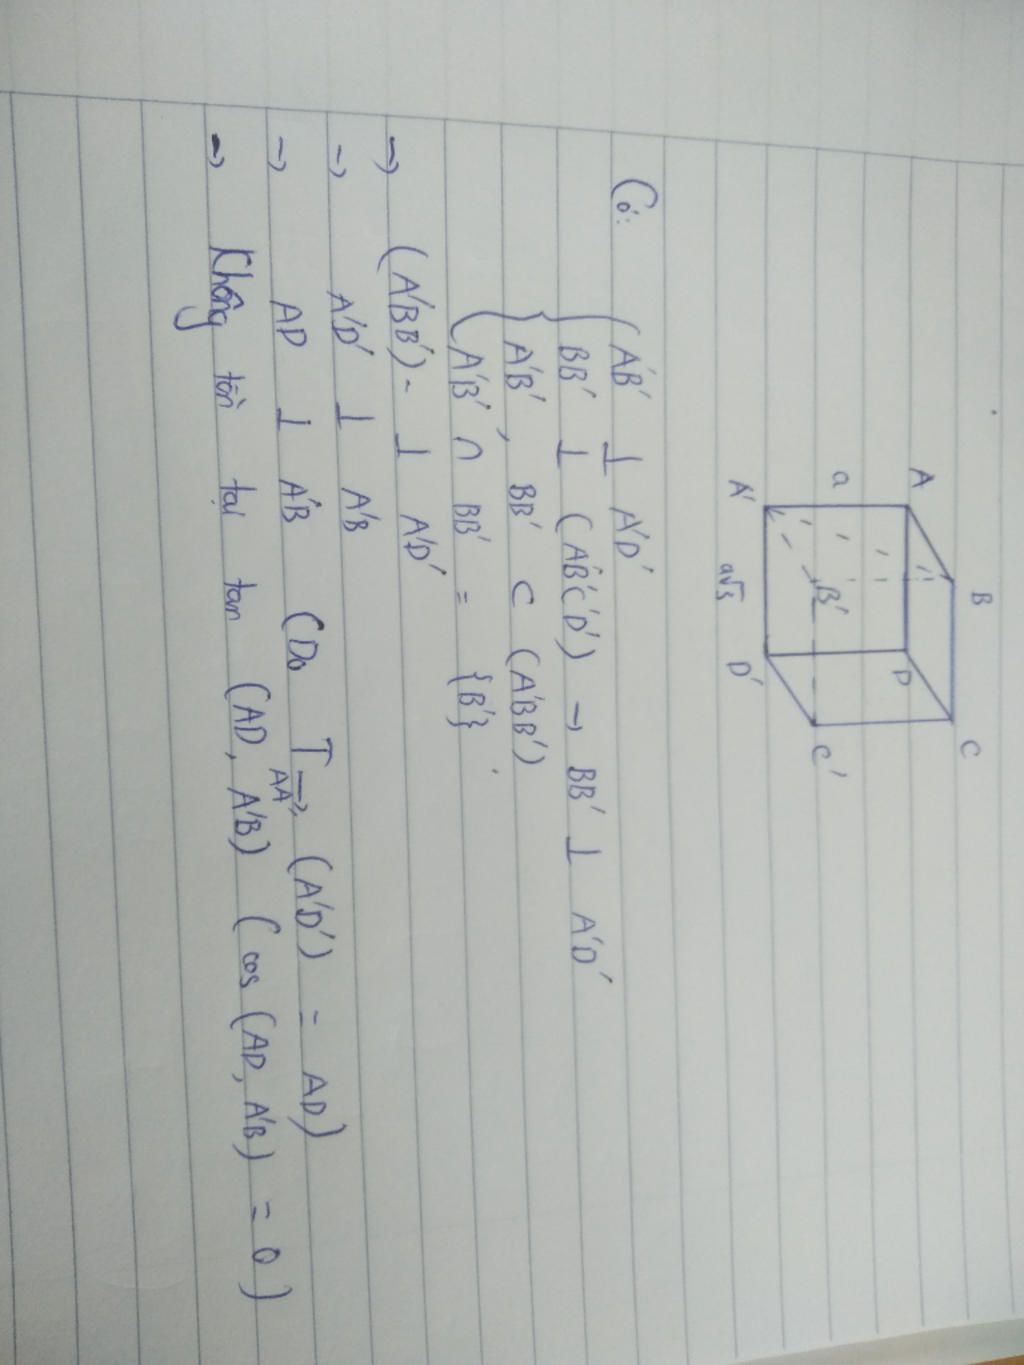 A
B
C
D
a
A'
B'
D'
C'
a√3
Có: A'B' ⊥ A'D'
BB' ⊥ (A'B'C'D') → BB' ⊥ A'D'
A'B', BB' ⊂ (A'BB')
A'B' ∩ BB' = {B'}
→ (A'BB') ⊥ A'D'
→ A'D' ⊥ A'B
→ AD ⊥ A'B (Do T_{\overrightarrow{AA'}} (A'D') = AD)
→ Không tồn tại tan (AD, A'B) (cos (AD, A'B) = 0)